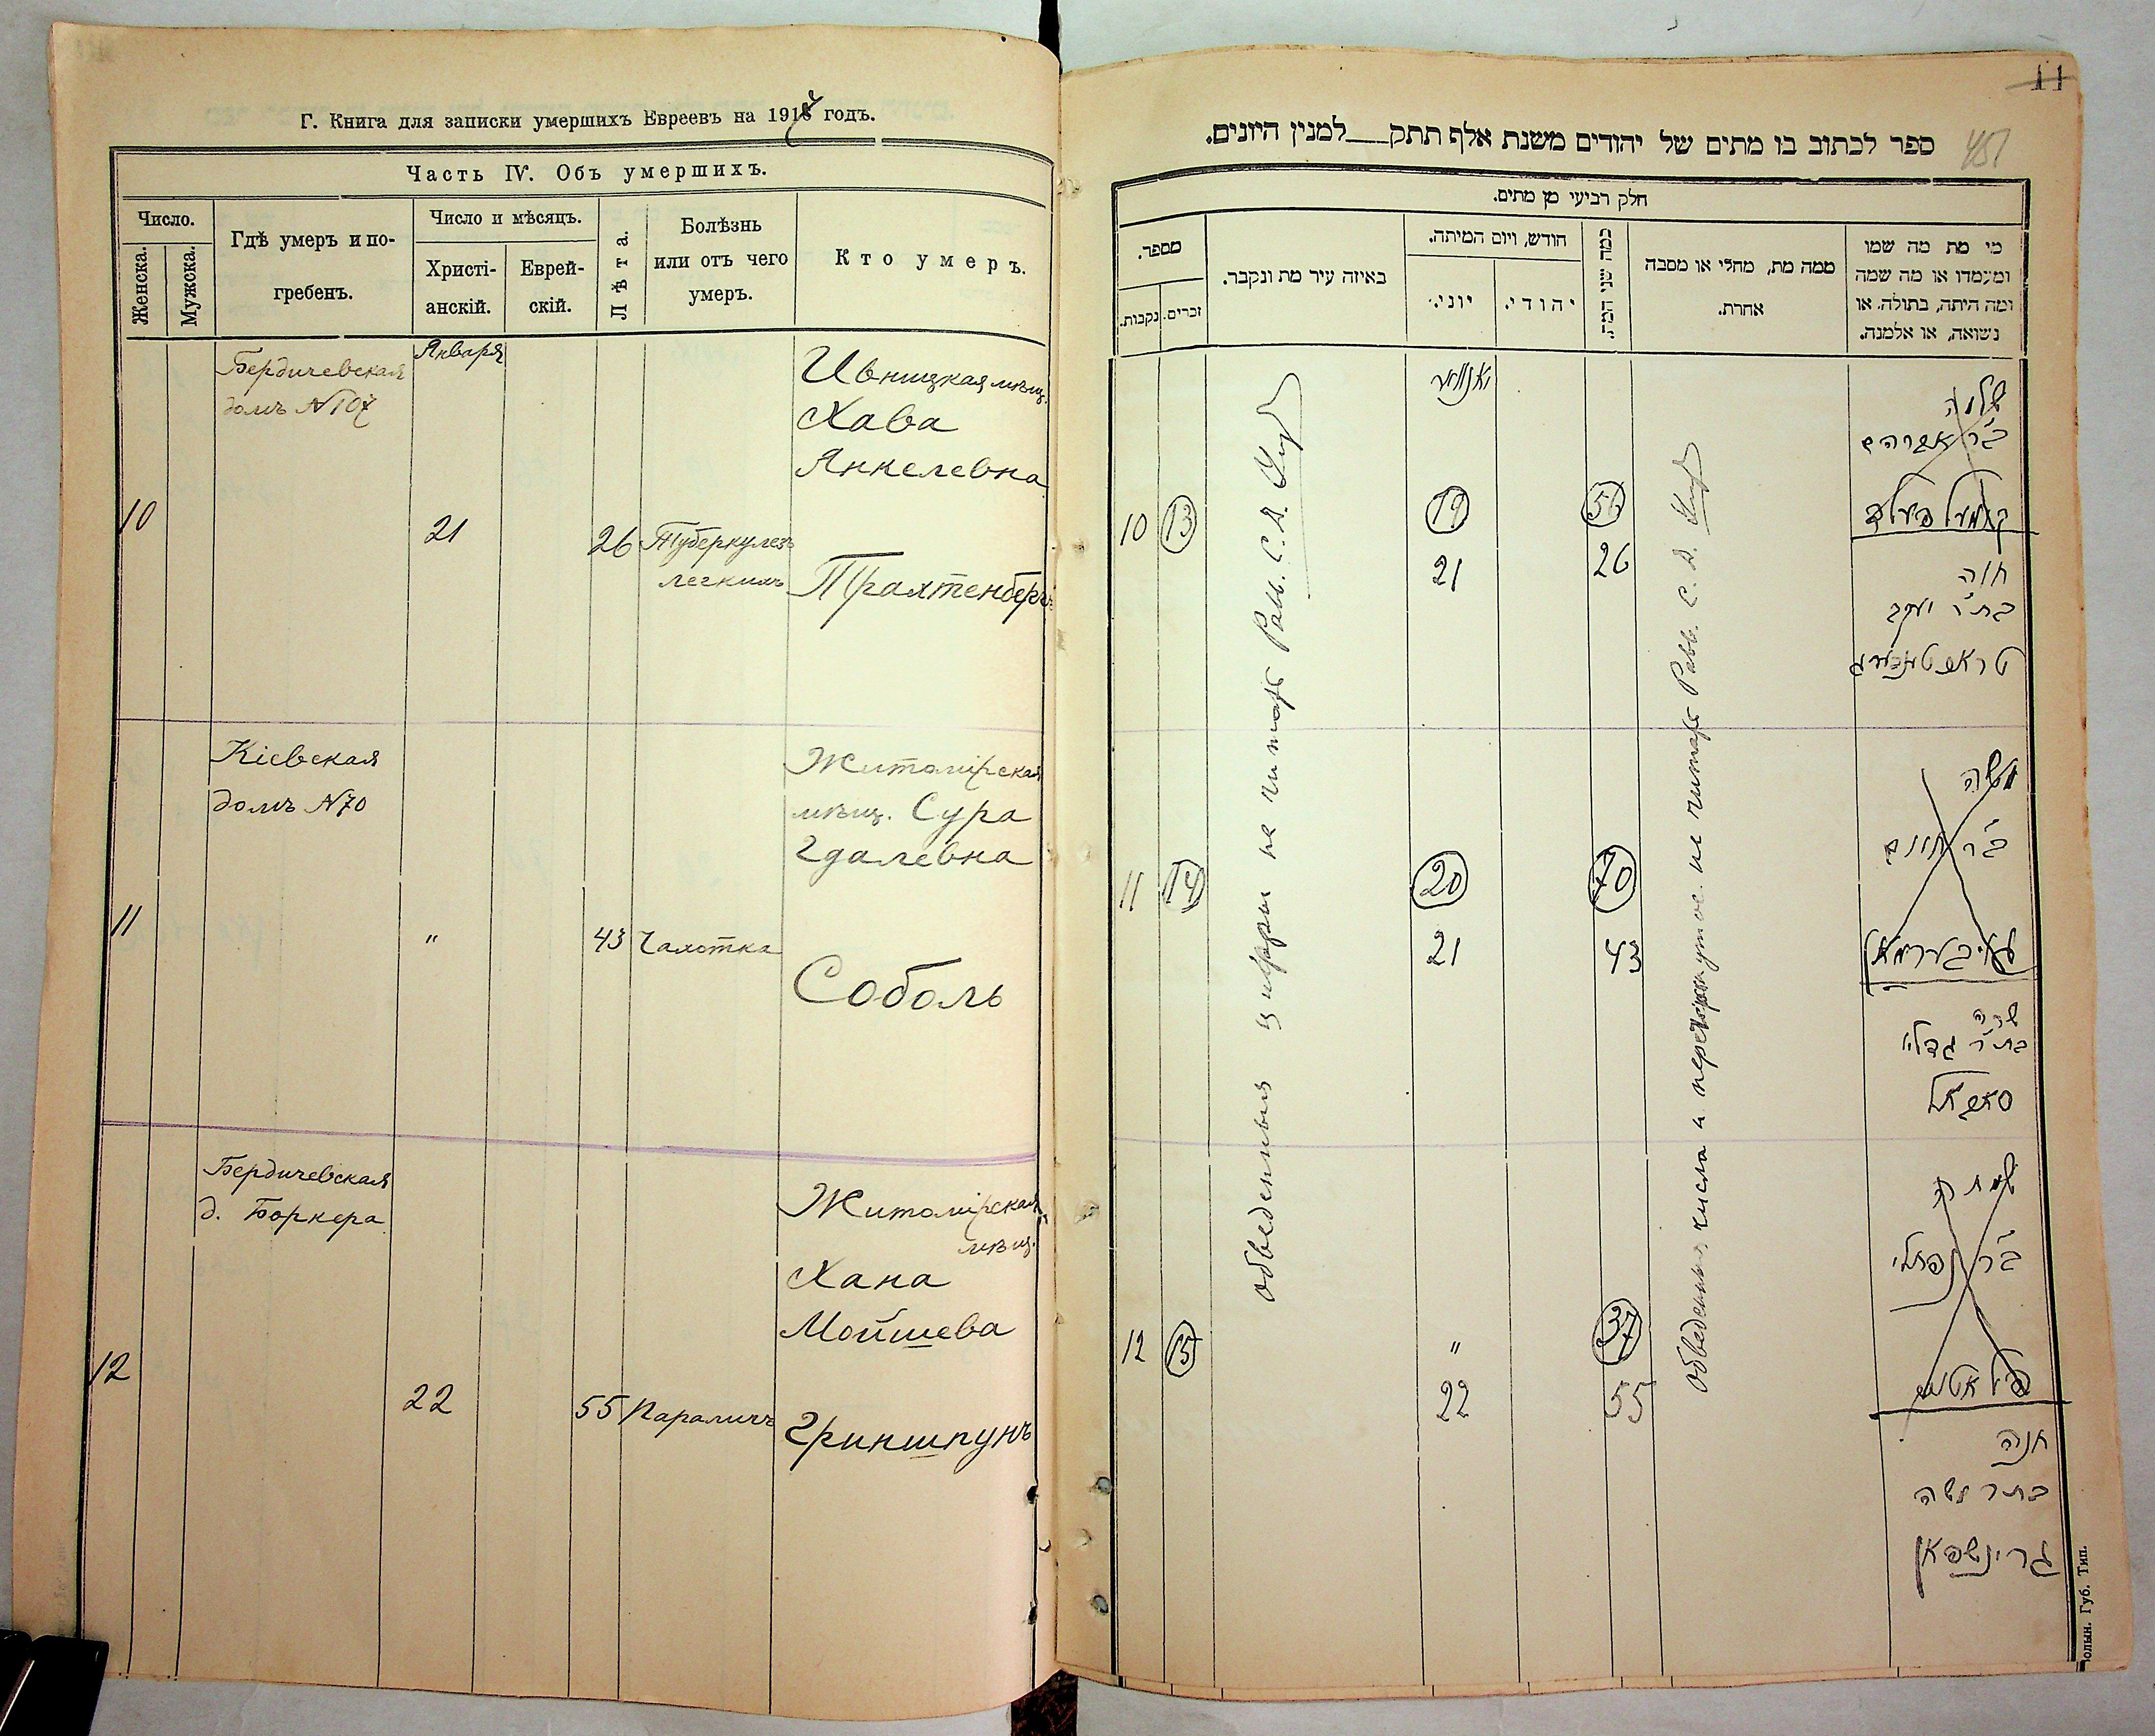 Г. Книга для записки умершихъ Евреевъ на 191 годъ.
Часть IV. Объ умершихъ.
Число.
Женска.
Мужска.
Гдѣ умеръ и по-
гребенъ.
Число и мѣсяцъ.
Христі-
анскій.
Еврей-
скій.
Лѣта.
Болѣзнь
или отъ чего
умеръ.
Кто умеръ.
10
Бердичевская
домъ №107
Января
21
26
Туберкулезъ
легкихъ
Ивницкая мѣщ.
Хава
Янкелевна
Трахтенбергъ
11
Кіевская
домъ №70
"
43
Чахотка
Житомірская
мѣщ. Сура
Гдалевна
Соболь
12
Бердичевская
д. Боркера
22
55
Параличъ
Житомірская
мѣщ.
Хана
Мойшева
Гриншпунъ
11
451
ספר לכתוב בו מתים של יהודים משנת אלף תתק__למנין היונים.
חלק רביעי מן מתים.
מי מת מה שמו
ומעמדו או מה שמה
ומה היתה, בתולה. או
נשואה, או אלמנה.
ממה מת, מחלי או מסבה
אחרת.
כמה שני המת.
חודש, ויום המיתה.
יהודי.
יוני.
באיזה עיר מת ונקבר.
מספר.
זכרים.
נקבות.
יאנואר
10
13
19
56
21
26
שלמה
ב"ר אברהם
חוה
בת"ר יעקב
טראכטנבערג
11
14
20
70
21
43
משה
ב"ר חיים
שרה
בת"ר גדליי
סאבאל
12
15
"
37
22
55
ב"ר נפתלי
חנה
בת"ר משה
גרינשפאן
Обведенныя цифры не читать Рав. С. Д.
Обведенныя числа и перечеркнутое не читать Равв. С. Д.
Волын. Губ. Тип.